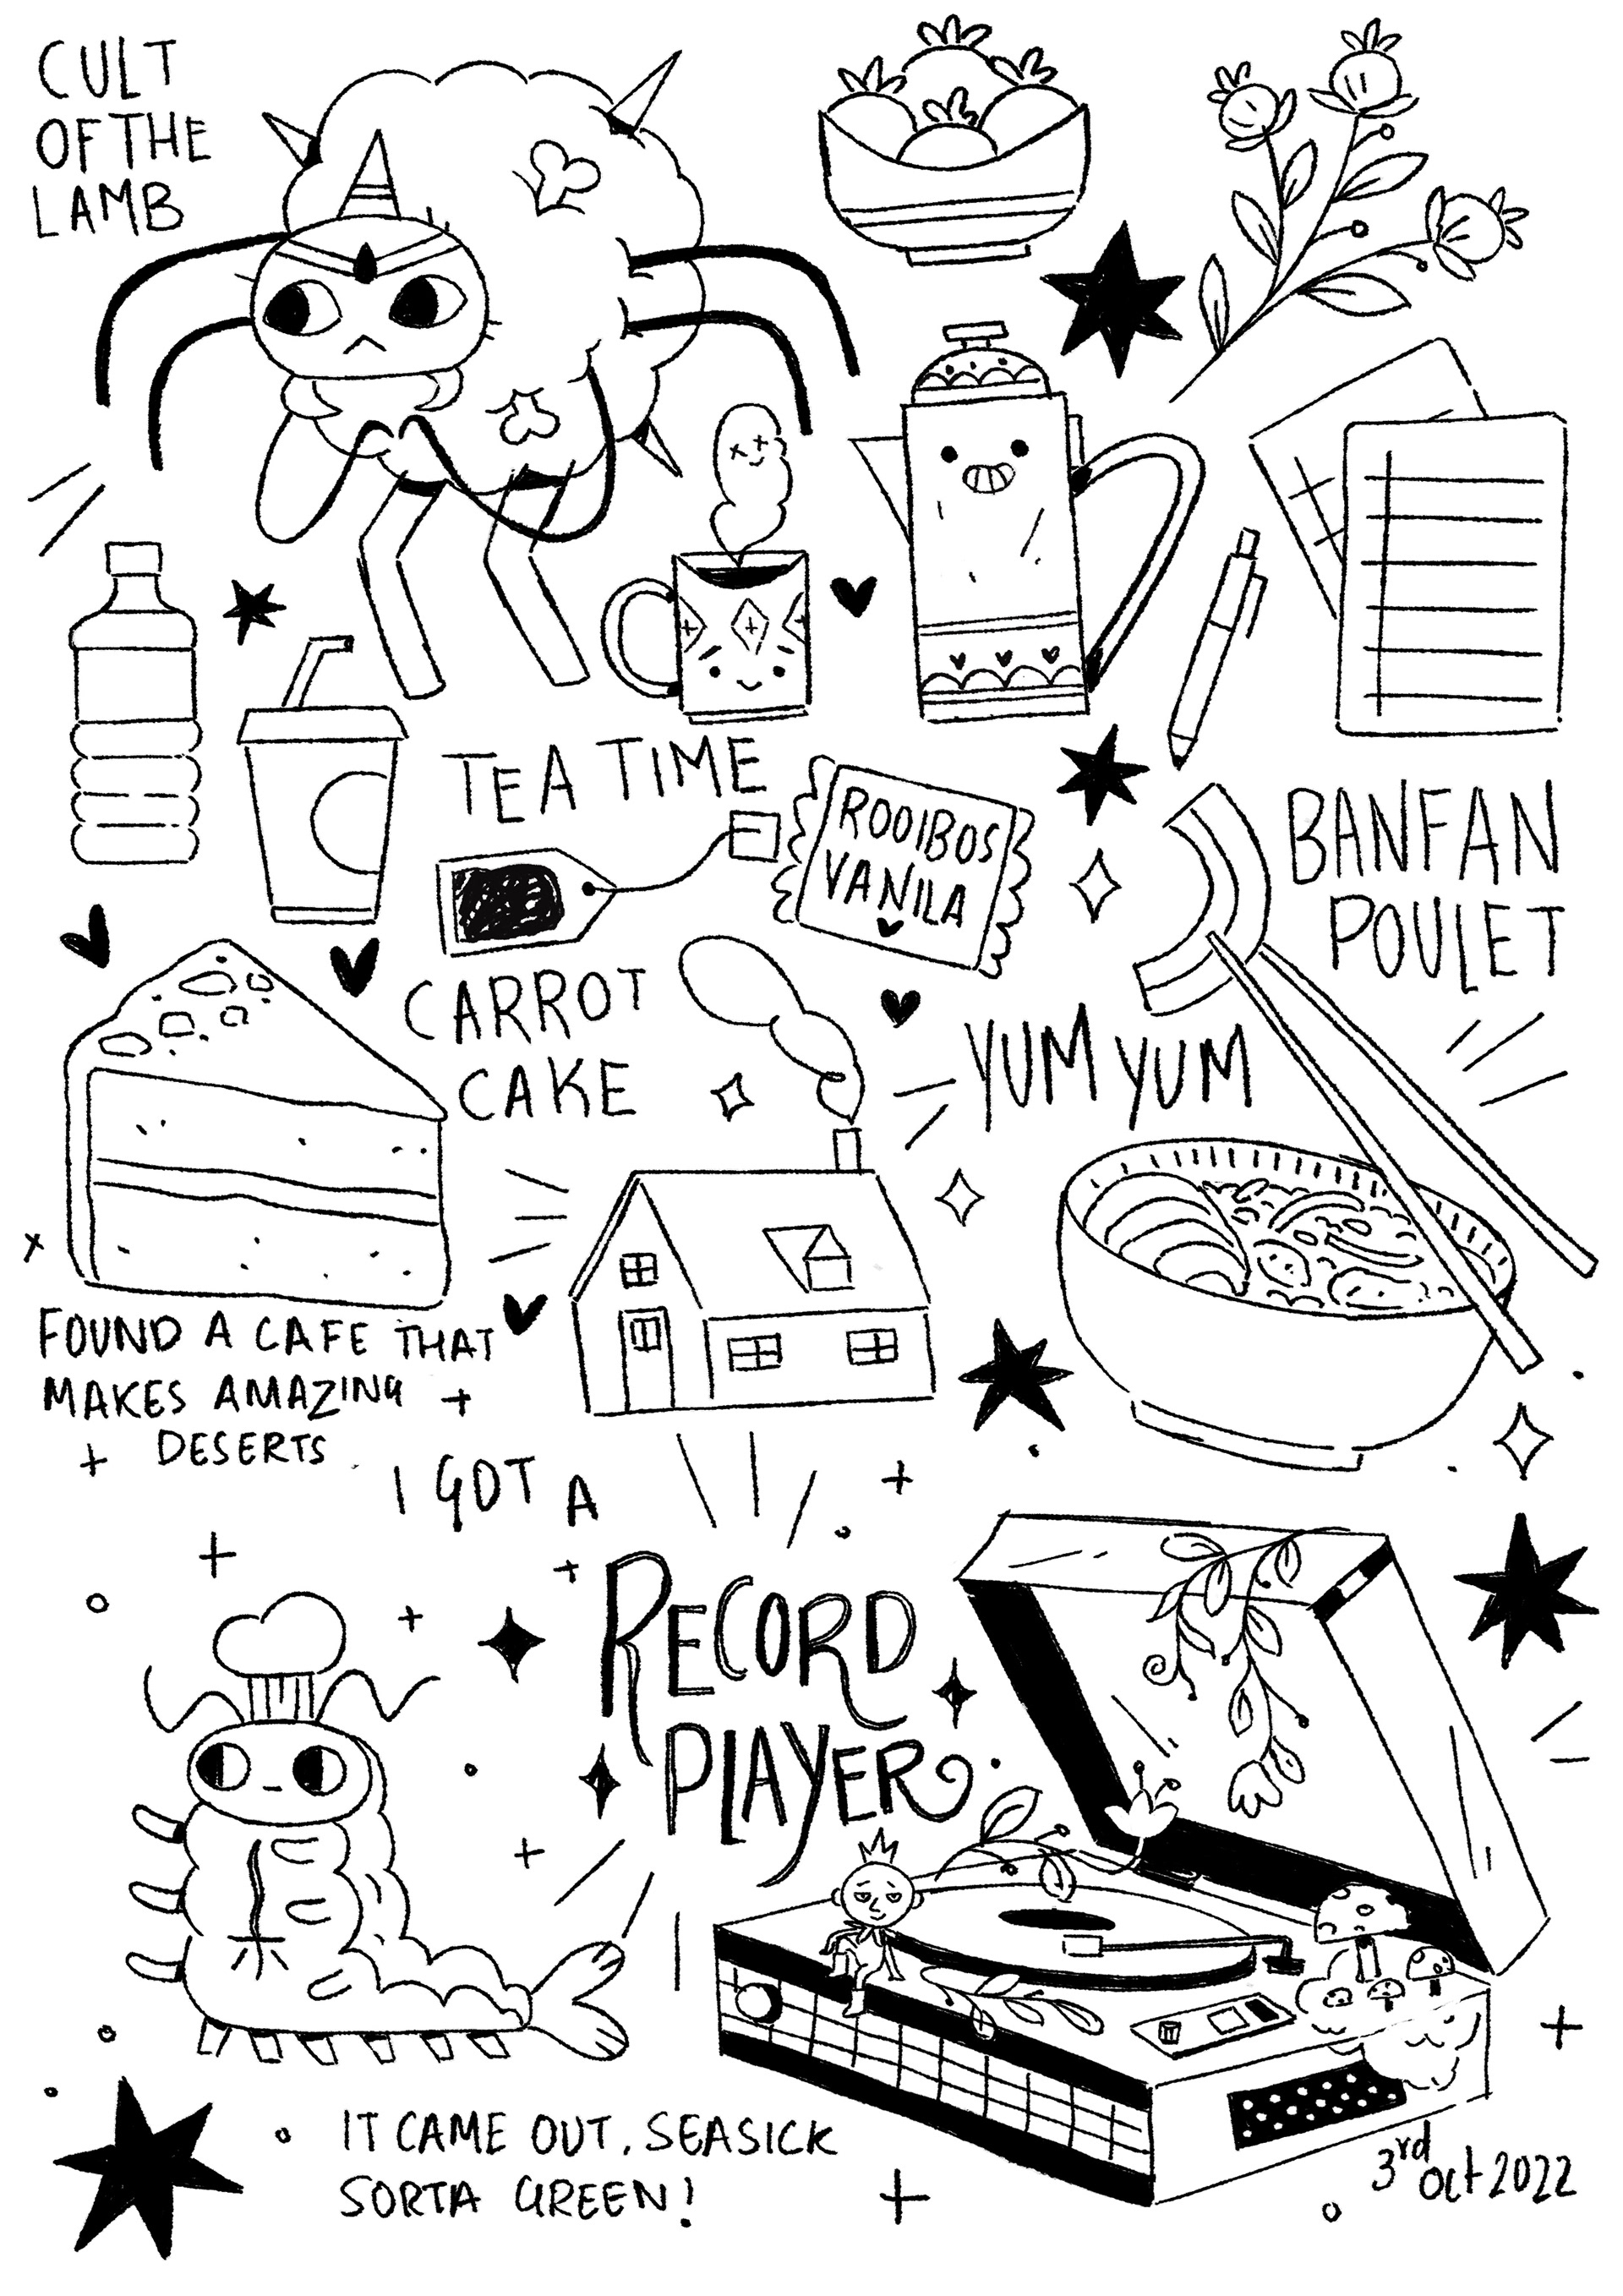 CULT
OF THE
LAMB
TEA TIME
ROOIBOS
VANILA
BANFAN
POULET
CARROT
CAKE
YUM YUM
FOUND A CAFE THAT
MAKES AMAZING
DESERTS
I GOT A
RECORD
PLAYER
IT CAME OUT, SEASICK
SORTA GREEN!
3rd Oct 2022